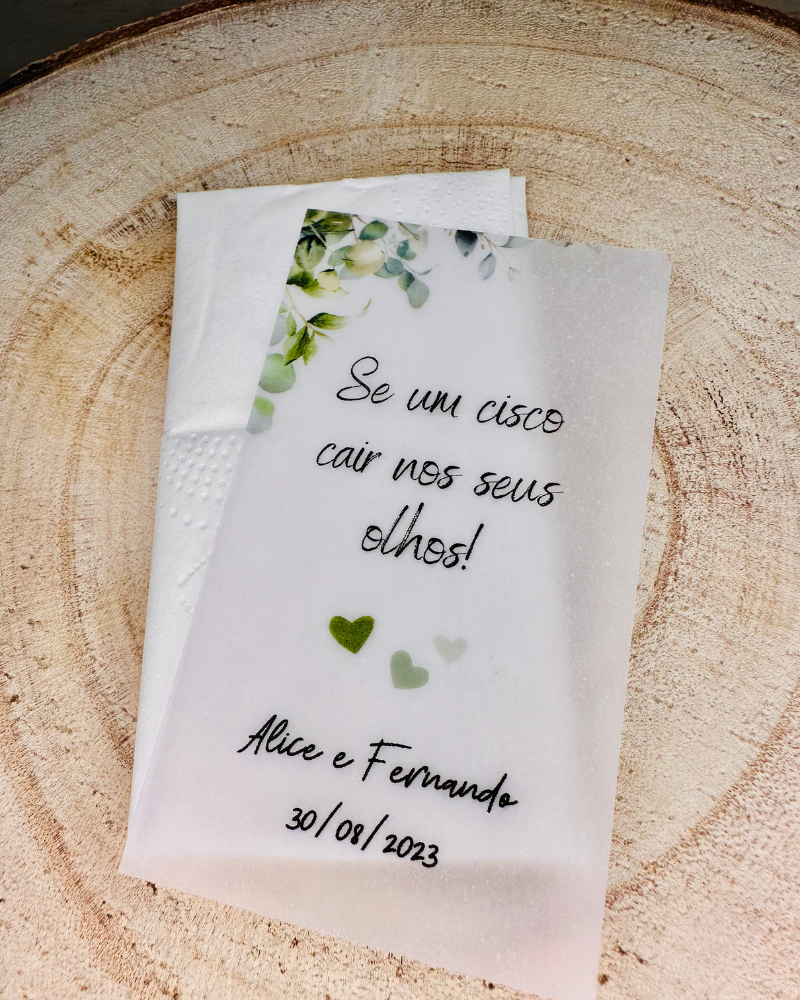 Se um cisco
cair nos seus
olhos!
Alice e Fernando
30/08/2023